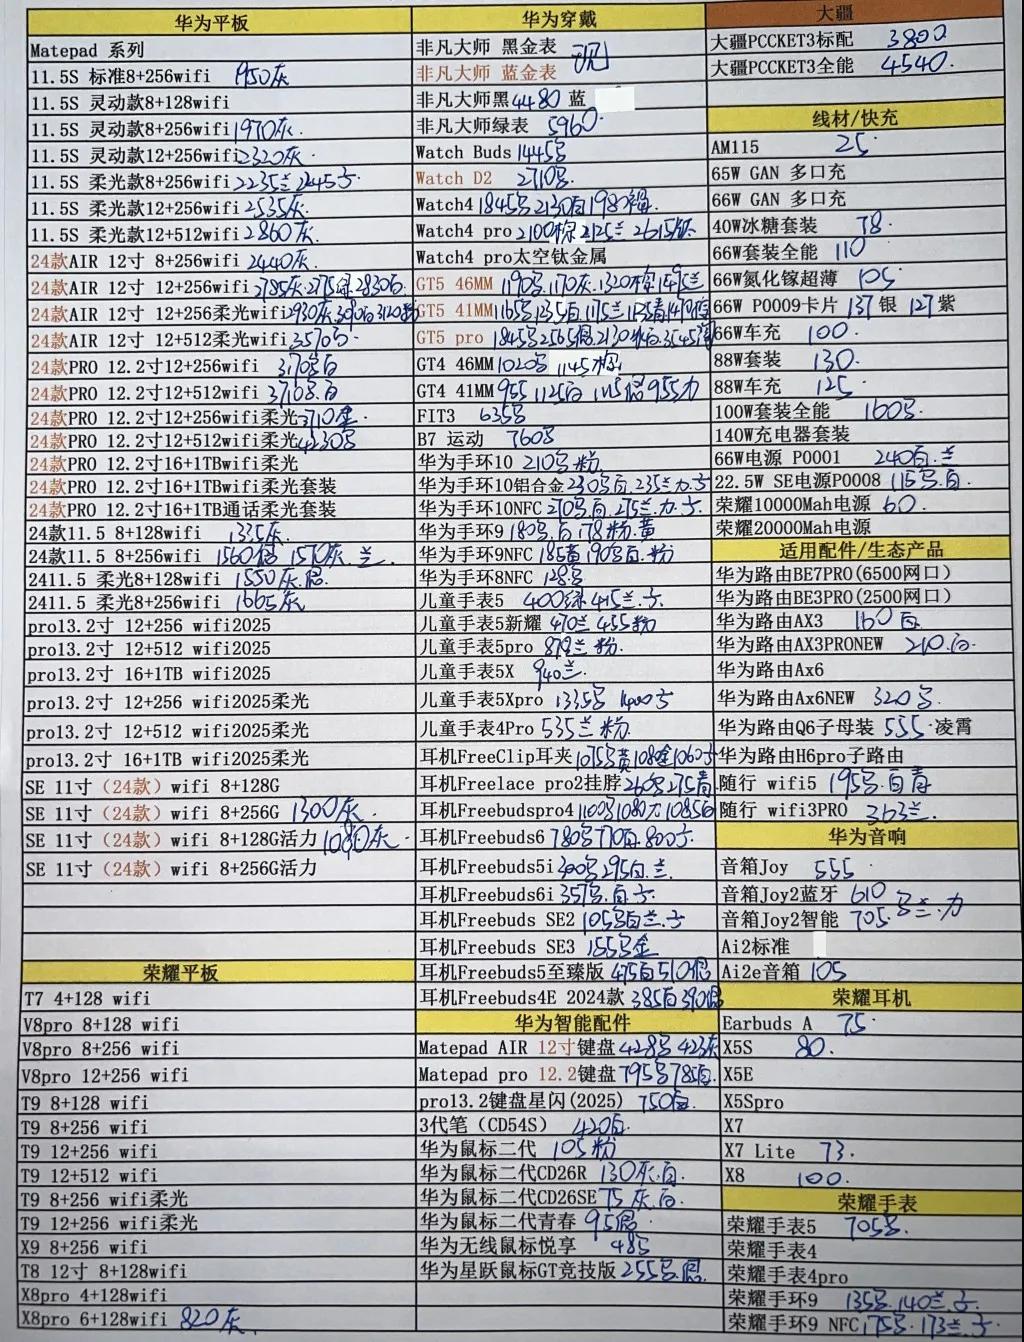 华为平板
Matepad 系列
11.5S 标准8+256wifi 1950灰
11.5S 灵动款8+128wifi
11.5S 灵动款8+256wifi 1970灰.
11.5S 灵动款12+256wifi 2320灰.
11.5S 柔光款8+256wifi 2235兰 2245
11.5S 柔光款12+256wifi 2535灰.
11.5S 柔光款12+512wifi 2860灰.
24款AIR 12寸 8+256wifi 2440灰.
24款AIR 12寸 12+256wifi 2785灰 2830白.
24款AIR 12寸 12+256柔光wifi 2930灰 3120粉
24款AIR 12寸 12+512柔光wifi 3570
24款PRO 12.2寸12+256wifi 3170
24款PRO 12.2寸12+512wifi 3710
24款PRO 12.2寸12+256wifi柔光 3710
24款PRO 12.2寸12+512wifi柔光
24款PRO 12.2寸16+1TBwifi柔光
24款PRO 12.2寸16+1TBwifi柔光套装
24款PRO 12.2寸16+1TB通话柔光套装
24款11.5 8+128wifi 1335灰
24款11.5 8+256wifi 1560 1570灰.兰.
2411.5 柔光8+128wifi 1550灰
2411.5 柔光8+256wifi 1665灰
pro13.2寸 12+256 wifi2025
pro13.2寸 12+512 wifi2025
pro13.2寸 16+1TB wifi2025
pro13.2寸 12+256 wifi2025柔光
pro13.2寸 12+512 wifi2025柔光
pro13.2寸 16+1TB wifi2025柔光
SE 11寸（24款）wifi 8+128G
SE 11寸（24款）wifi 8+256G 1300灰.
SE 11寸（24款）wifi 8+128G活力 灰.
SE 11寸（24款）wifi 8+256G活力
荣耀平板
T7 4+128 wifi
V8pro 8+128 wifi
V8pro 8+256 wifi
V8pro 12+256 wifi
T9 8+128 wifi
T9 8+256 wifi
T9 12+256 wifi
T9 12+512 wifi
T9 8+256 wifi柔光
T9 12+256 wifi柔光
X9 8+256 wifi
T8 12寸 8+128wifi
X8pro 4+128wifi
X8pro 6+128wifi 820灰.
华为穿戴
非凡大师 黑金表 现
非凡大师 蓝金表
非凡大师黑4480 蓝
非凡大师绿表 5960.
Watch Buds 1445
Watch D2 2710
Watch4 1845 2130 1980
Watch4 pro 2100棕 2125兰 2615
Watch4 pro太空钛金属
GT5 46MM 1190 1170灰.1320棕
GT5 41MM 1165 1175兰
GT5 pro 1845 2130
GT4 46MM 1020 1145棕
GT4 41MM 955 1125白
FIT3 635
B7 运动 760
华为手环10 210 粉.
华为手环10铝合金 230 白.235兰
华为手环10NFC 270 白.275兰
华为手环9 180 白 178粉.黄
华为手环9NFC 185黄 190 白.粉
华为手环8NFC 128
儿童手表5 400绿 415兰.
儿童手表5新耀 470兰 455粉
儿童手表5pro 878兰 粉.
儿童手表5X 940兰.
儿童手表5Xpro 1335 1400
儿童手表4Pro 535兰 粉.
耳机FreeClip耳夹 1075 1080金 1060
耳机Freelace pro2挂脖 260 275青
耳机Freebudspro4 1100 1080 1085白
耳机Freebuds6 780 770白.800
耳机Freebuds5i 300 295白.兰.
耳机Freebuds6i 357 .白.
耳机Freebuds SE2 105 白兰.
耳机Freebuds SE3 155 金
耳机Freebuds5至臻版 475白 510
耳机Freebuds4E 2024款 385白 390
华为智能配件
Matepad AIR 12寸键盘 428 423灰
Matepad pro 12.2键盘 795 785白.
pro13.2键盘星闪(2025) 750白.
3代笔（CD54S） 420白.
华为鼠标二代 105粉
华为鼠标二代CD26R 130灰.白.
华为鼠标二代CD26SE 75灰.白.
华为鼠标二代青春 95
华为无线鼠标悦享 48
华为星跃鼠标GT竞技版 255
大疆
大疆PCCKET3标配 3800
大疆PCCKET3全能 4540.
线材/快充
AM115 25.
65W GAN 多口充
66W GAN 多口充
40W冰糖套装 78.
66W套装全能 110
66W氮化镓超薄 105
66W P0009卡片 137 银 127 紫
66W车充 100.
88W套装 130.
88W车充 125.
100W套装全能 160
140W充电器套装
66W电源 P0001 240白.兰
22.5W SE电源P0008 115 .白.
荣耀10000Mah电源 60.
荣耀20000Mah电源
适用配件/生态产品
华为路由BE7PRO(6500网口)
华为路由BE3PRO(2500网口)
华为路由AX3 160 白
华为路由AX3PRONEW 210.白.
华为路由Ax6
华为路由Ax6NEW 320
华为路由Q6子母装 555.凌霄
华为路由H6pro子路由
随行 wifi5 195 白青
随行 wifi3PRO 363兰.
华为音响
音箱Joy 555.
音箱Joy2蓝牙 610
音箱Joy2智能 705.
Ai2标准
Ai2e音箱 105
荣耀耳机
Earbuds A 75.
X5S 80.
X5E
X5Spro
X7
X7 Lite 73.
X8 100.
荣耀手表
荣耀手表5 705
荣耀手表4
荣耀手表4pro
荣耀手环9 135 .140兰.
荣耀手环9 NFC 175 .173兰.